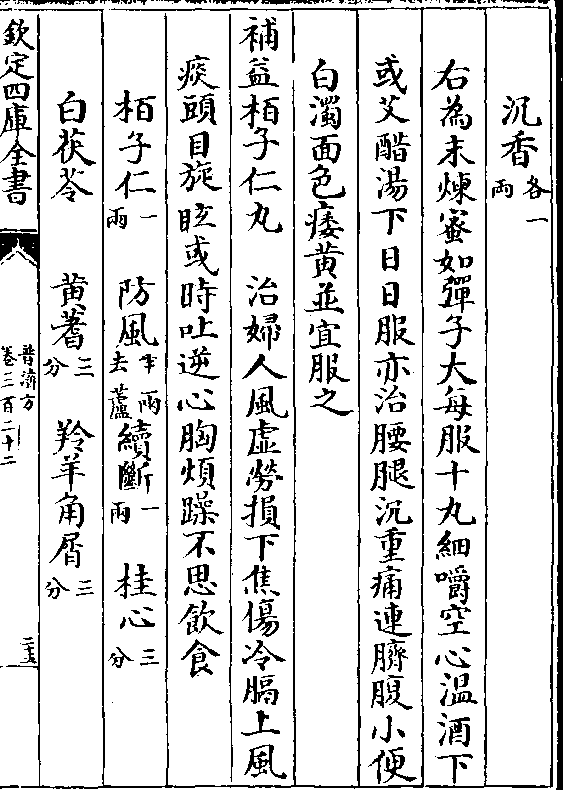 沉香各一兩
右為末煉蜜如彈子大每服十丸細嚼空心温酒下
或艾醋湯下日日服亦治腰腿沉重痛連臍腹小便
白濁面色痿黄並宜服之
補益栢子仁丸　治婦人風虚勞損下焦傷冷膈上風
痰頭目旋眩或時吐逆心胸煩躁不思飲食
栢子仁一兩　防風半兩去蘆　續斷一兩　桂心三分
白茯苓　黄蓍三分　羚羊角屑三分
欽定四庫全書　普濟方卷三百二十二　二五